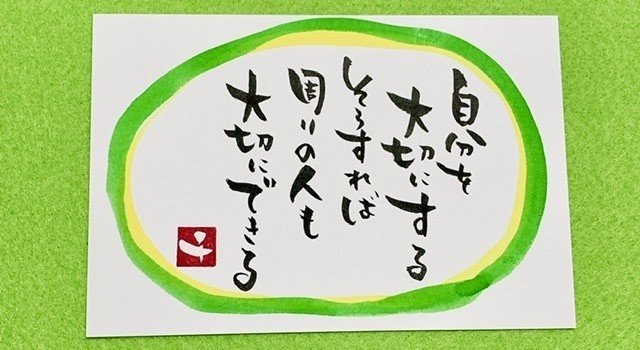 自分を
大切にする
そうすれば
周りの人も
大切にできる